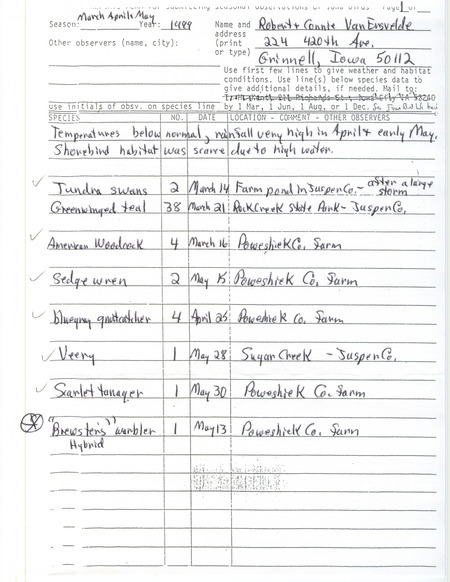 March April & May
Season: Year: 1999 Name and Robert & Connie Van Ersvelde
address
Other observers (name, city): (print 224 420th Ave.
or type) Grinnell, Iowa 50112
Use first few lines to give weather and habitat
conditions. Use line(s) below species data to
give additional details, if needed. Mail to:
use initials of obsv. on species line by 1 Mar, 1 Jun, 1 Aug, or 1 Dec.
SPECIES NO. DATE LOCATION - COMMENT - OTHER OBSERVERS
Temperatures below normal, rainfall very high in April & early May.
Shorebird habitat was scarce due to high water.
Tundra swans 2 March 14 Farm pond in Jasper Co. - after a large storm
Greenwinged teal 38 March 21 Rock Creek State Park - Jasper Co.
American Woodcock 4 March 16 Poweshiek Co. farm
Sedge wren 2 May 15 Poweshiek Co. farm
bluegray gnatcatcher 4 April 25 Poweshiek Co. farm
Veery 1 May 28 Sugar Creek - Jasper Co.
Scarlet tanager 1 May 30 Poweshiek Co. farm
"Brewster's" warbler 1 May 13 Poweshiek Co. farm
Hybrid